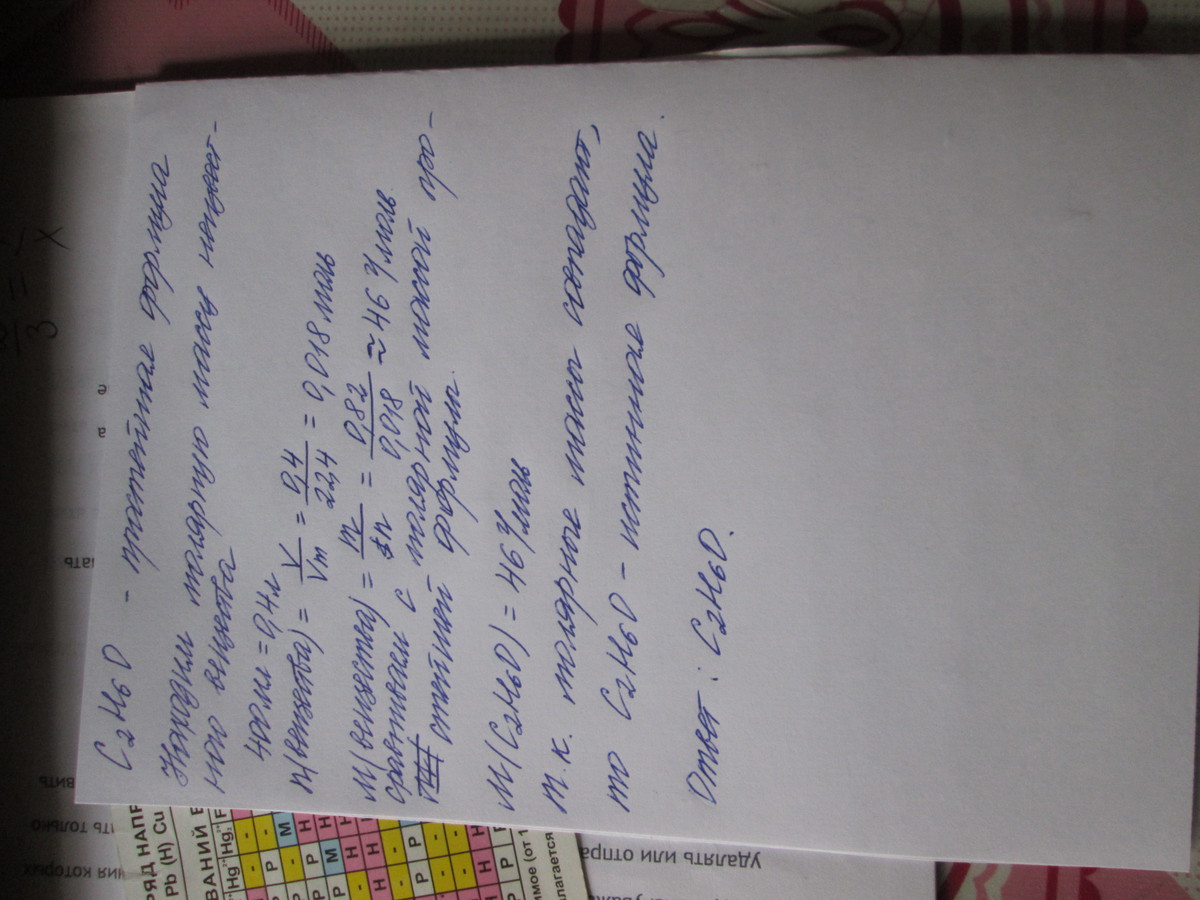 C₂H₆O - простейшая формула
Находим молярную массу неизвест-
ного вещества
400мл = 0,4л
n(вещества) = V/Vm = 0,4/22,4 = 0,018 моль
M(вещества) = m/n = 0,82/0,018 ≈ 46 г/моль
сравниваем с молярной массой про-
стейшей формулы.
M(C₂H₆O) = 46 г/моль
т.к. молярные массы совпадают,
то C₂H₆O - истинная формула
Ответ: C₂H₆O.
3 = x
РЯД НАПР
Pb (H) Cu
ВАНИЙ В
удалять или отпра
ть только
ния которых
вить